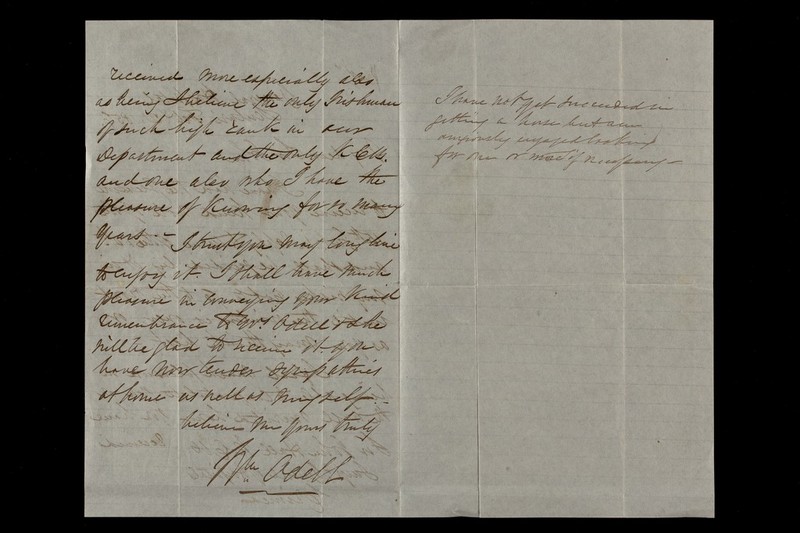 received more especially also
as being I believe the only Irishman
of such high rank in our
Department and the only K.C.B.
and one also who I have the
pleasure of knowing for so many
years. – I trust you may long live
to enjoy it. I shall have much
pleasure in conveying your kind
remembrance to Mrs Odell & she
will be glad to receive it. you
have now tender sympathies
at home as well as myself –
believe me yours truly
Wm Odell
I have not yet succeeded in
getting a horse but am
anxiously engaged looking
for one or more if necessary –